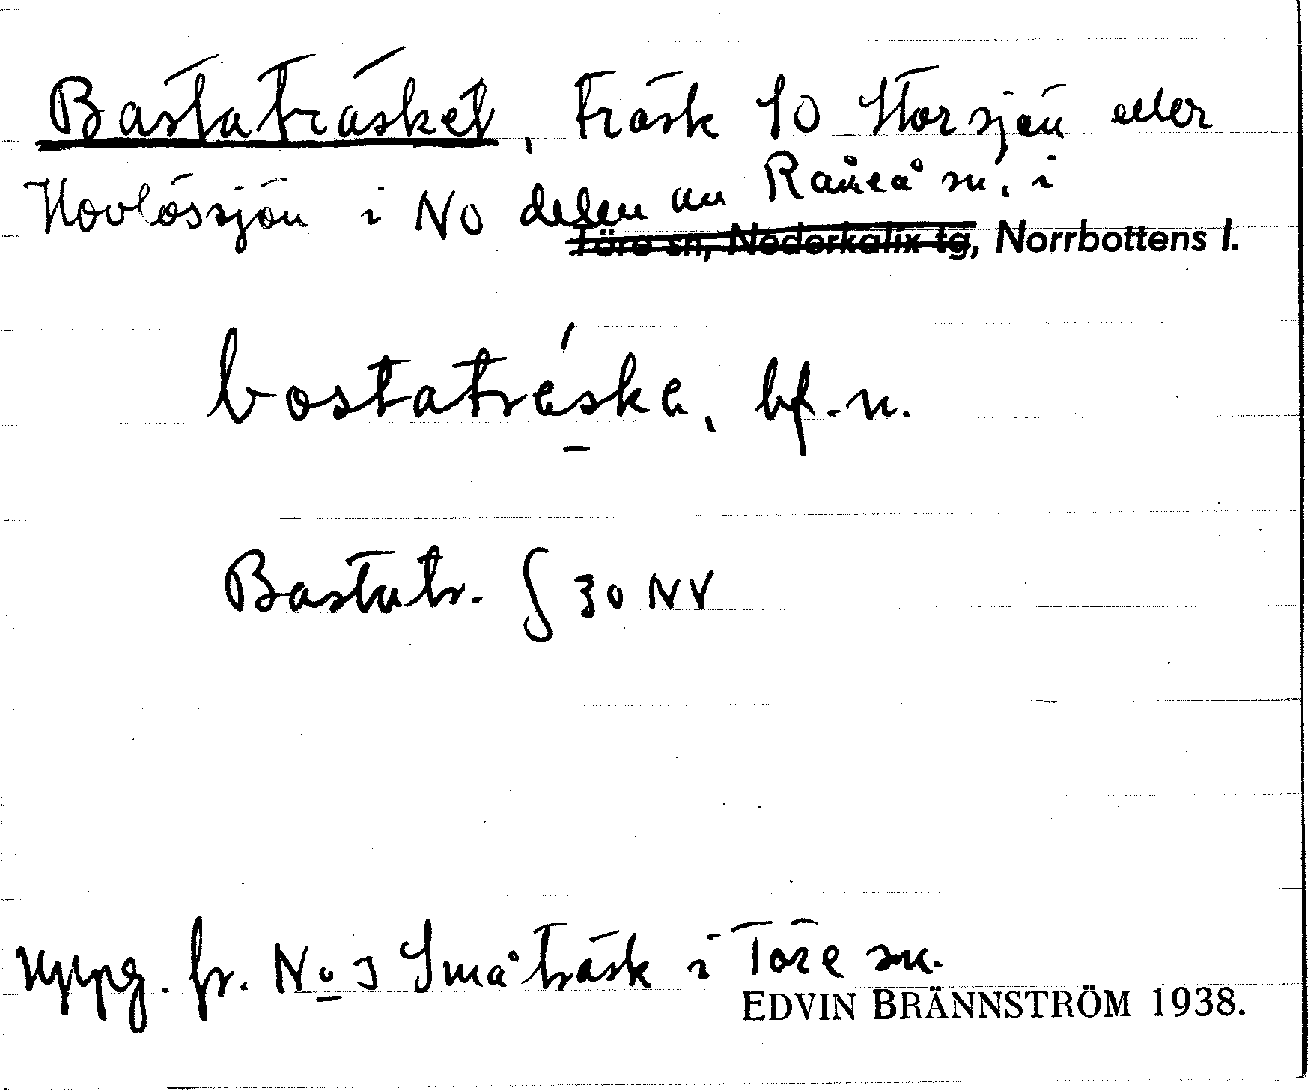 Bastaträsket, träsk SO Storsjön eller
Hovlössjön i NO delen av Råneå sn. i
Töre sn, Nederkalix tg, Norrbottens l.
bostatrǻska, bf. n.
Bastatr. § 30 NV
uppg. fr. No 3 Småträsk i Töre sn.
EDVIN BRÄNNSTRÖM 1938.